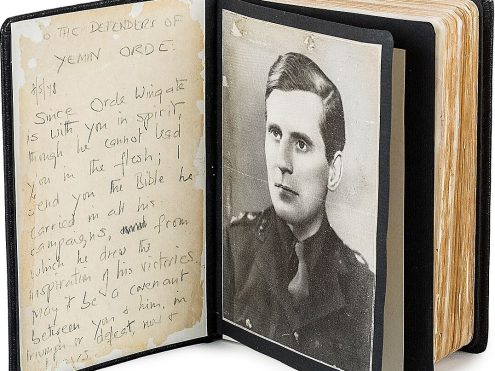 o THE DEFENDERS OF
YEMIN ORDE.
8/5/48
Since Orde Wingate
is with you in spirit,
though he cannot lead
you in the flesh; I
send you the Bible he
carried in all his
campaigns, and from
which he drew the
inspiration of his victories.
May it be a covenant
between you & him, in
triumph or defeat, now &